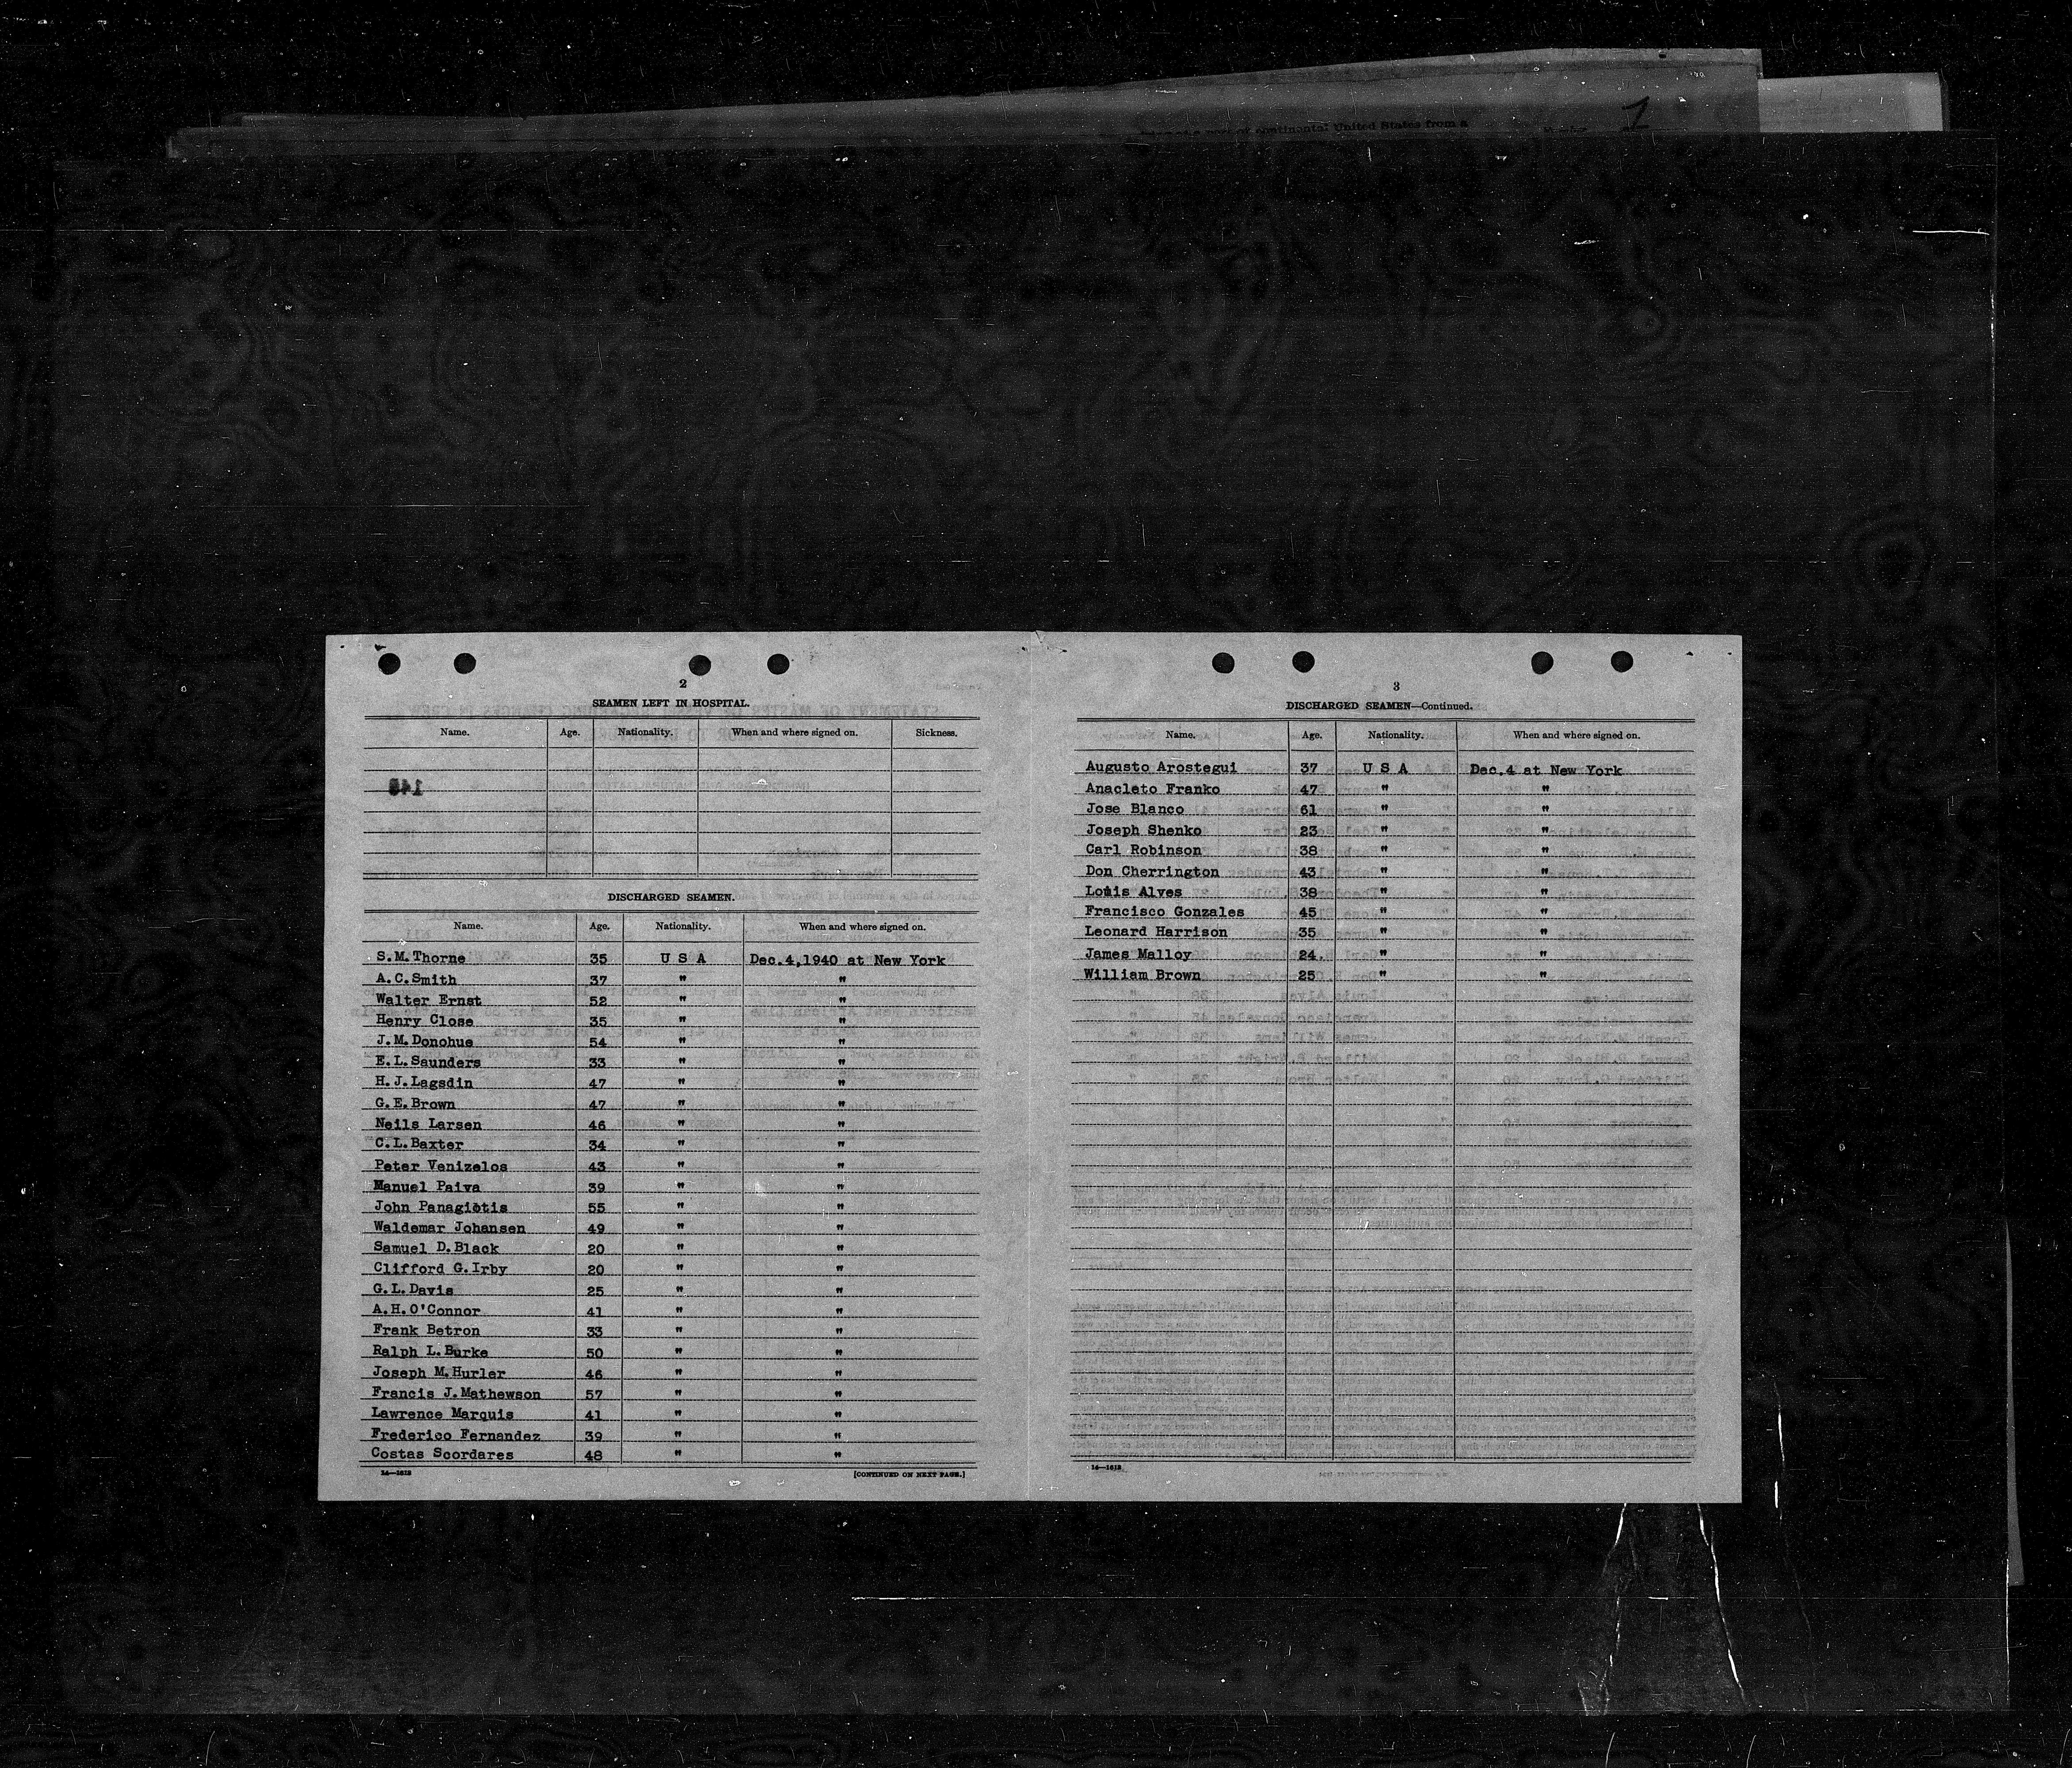 continental United States from a
1
2
SEAMEN LEFT IN HOSPITAL.
Name. Age. Nationality. When and where signed on. Sickness.
DISCHARGED SEAMEN.
Name. Age. Nationality. When and where signed on.
S.M.Thorne 35 U S A Dec.4,1940 at New York
A.C.Smith 37 " "
Walter Ernst 52 " "
Henry Close 35 " "
J.M.Donohue 54 " "
E.L.Saunders 33 " "
H.J.Lagsdin 47 " "
G.E.Brown 47 " "
Neils Larsen 46 " "
C.L.Baxter 34 " "
Peter Venizelos 43 " "
Manuel Paiva 39 " "
John Panagiotis 55 " "
Waldemar Johansen 49 " "
Samuel D.Black 20 " "
Clifford G.Irby 20 " "
G.L.Davis 25 " "
A.H.O'Connor 41 " "
Frank Betron 33 " "
Ralph L.Burke 50 " "
Joseph M.Hurler 46 " "
Francis J.Mathewson 57 " "
Lawrence Marquis 41 " "
Frederico Fernandez 39 " "
Costas Scordares 48 " "
14—1613 [CONTINUED ON NEXT PAGE.]
3
DISCHARGED SEAMEN—Continued.
Name. Age. Nationality. When and where signed on.
Augusto Arostegui 37 U S A Dec.4 at New York
Anacleto Franko 47 " "
Jose Blanco 61 " "
Joseph Shenko 23 " "
Carl Robinson 38 " "
Don Cherrington 43 " "
Louis Alves 38 " "
Francisco Gonzales 45 " "
Leonard Harrison 35 " "
James Malloy 24. " "
William Brown 25 " "
14—1613